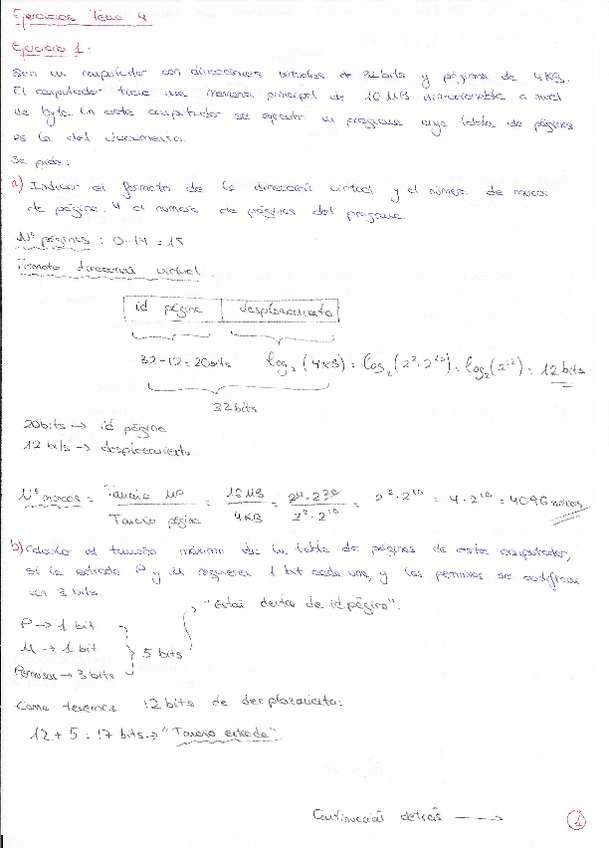 Ejercicios Tema 4
Ejercicio 1.
Sea un computador con direcciones virtuales de 32 bits y páginas de 4 KB.
El computador tiene una memoria principal de 16 MB direccionable a nivel
de byte. En este computador se ejecuta un programa cuya tabla de páginas
es la del documento.
Se pide:
a) Indicar el formato de la dirección virtual y el número de marcos
de página. Y el número de páginas del programa.
Nº páginas : 0-14 = 15
Formato dirección virtual
id página desplazamiento
32-12=20bits log₂(4KB) = log₂(2²·2¹⁰) = log₂(2¹²) = 12 bits
32 bits
20bits → id página
12 bits → desplazamiento
Nº marcos = Tamaño MP / Tamaño página = 16 MB / 4KB = 2⁴·2²⁰ / 2²·2¹⁰ = 2²·2¹⁰ = 4·2¹⁰ = 4096 marcos
b) Calcula el tamaño máximo de la tabla de páginas de este computador,
si la entrada P y M requieren 1 bit cada una, y los permisos se codifican
con 3 bits.
"Están dentro de id página".
P → 1 bit
M → 1 bit
5 bits
Permisos → 3 bits
Como tenemos 12 bits de desplazamiento:
12 + 5 = 17 bits → "Tamaño entrada"
Continuación detrás ---->
1